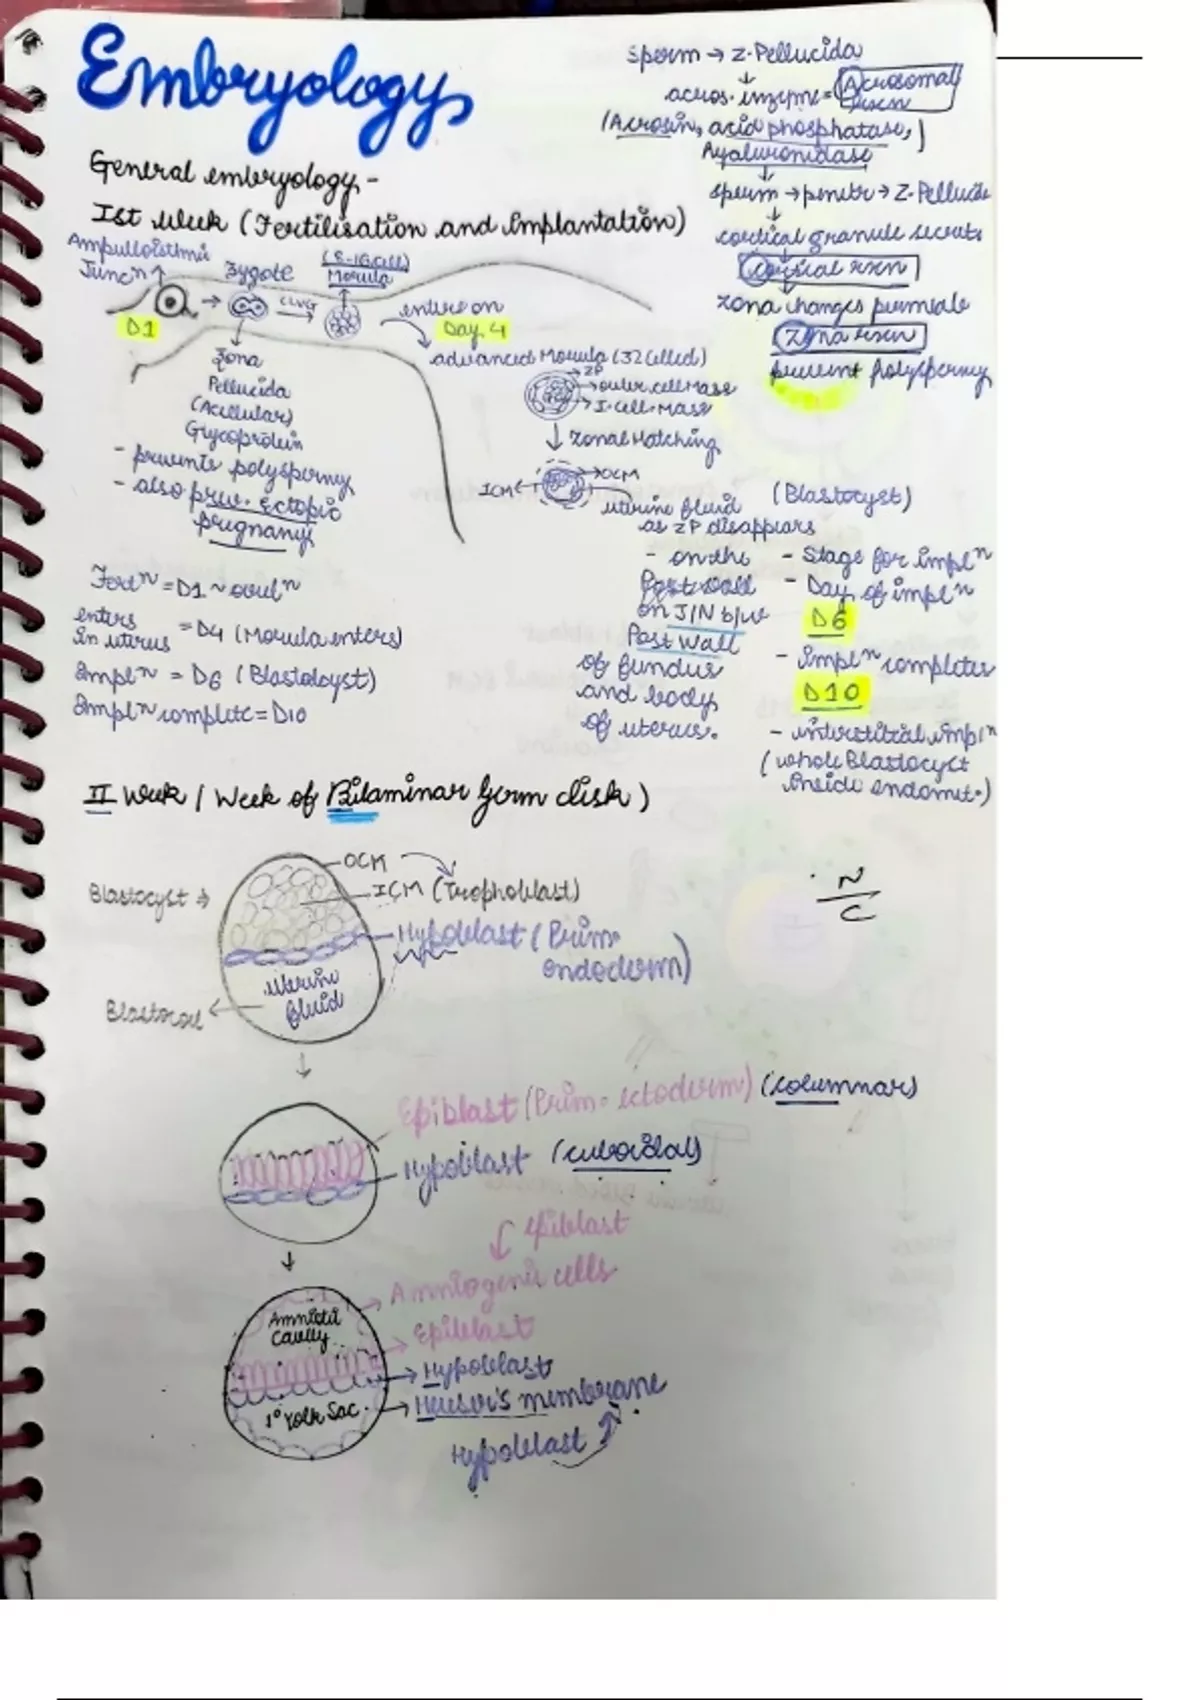 Embryology
General embryology -
Ist week (Fertilisation and Implantation)
Ampulloisthmic
Juncⁿ
D1
Zygote
CLVG
(8-16 cell)
Morula
enters on
Day 4
advanced Morula (32 celled)
ZP
outer cell Mass
I. cell. Mass
Zonal Hatching
ICM
OCM
uterine fluid
as ZP disappears
Zona
Pellucida
(Acellular)
Glycoprotein
- prevents polyspermy
- also prev. Ectopic
pregnancy
sperm → Z. Pellucida
acros. enzyme = Acrosomal
rxcn
(Acrosin, acid phosphatase,)
Hyaluronidase
sperm → penetr → Z. Pellucida
cortical granule secrets
Cortical rxcn
zona changes permeable
Zona rxcn
prevent polyspermy
Fertⁿ = D1 ~ ovulⁿ
enters
in uterus = D4 (Morula enters)
Implⁿ = D6 (Blastocyst)
Implⁿ complete = D10
- on the
Post wall
on J/N b/w
Post wall
of fundus
and body
of uterus.
(Blastocyst)
- Stage for implⁿ
- Day of implⁿ
D6
- Implⁿ completes
D10
- interstitial implⁿ
(whole Blastocyst
inside endomet.)
II Week (Week of Bilaminar Germ disk)
Blastocyst
OCM
ICM (Trophoblast)
Hypoblast (Prim.
endoderm)
uterine
fluid
Blastocoel
N
C
Epiblast (Prim. ectoderm) (columnar)
Hypoblast (cuboidal)
epiblast
Amniogenic cells
Amniotic
Cavity
Epiblast
Hypoblast
1° Yolk Sac.
Heuser's membrane
Hypoblast